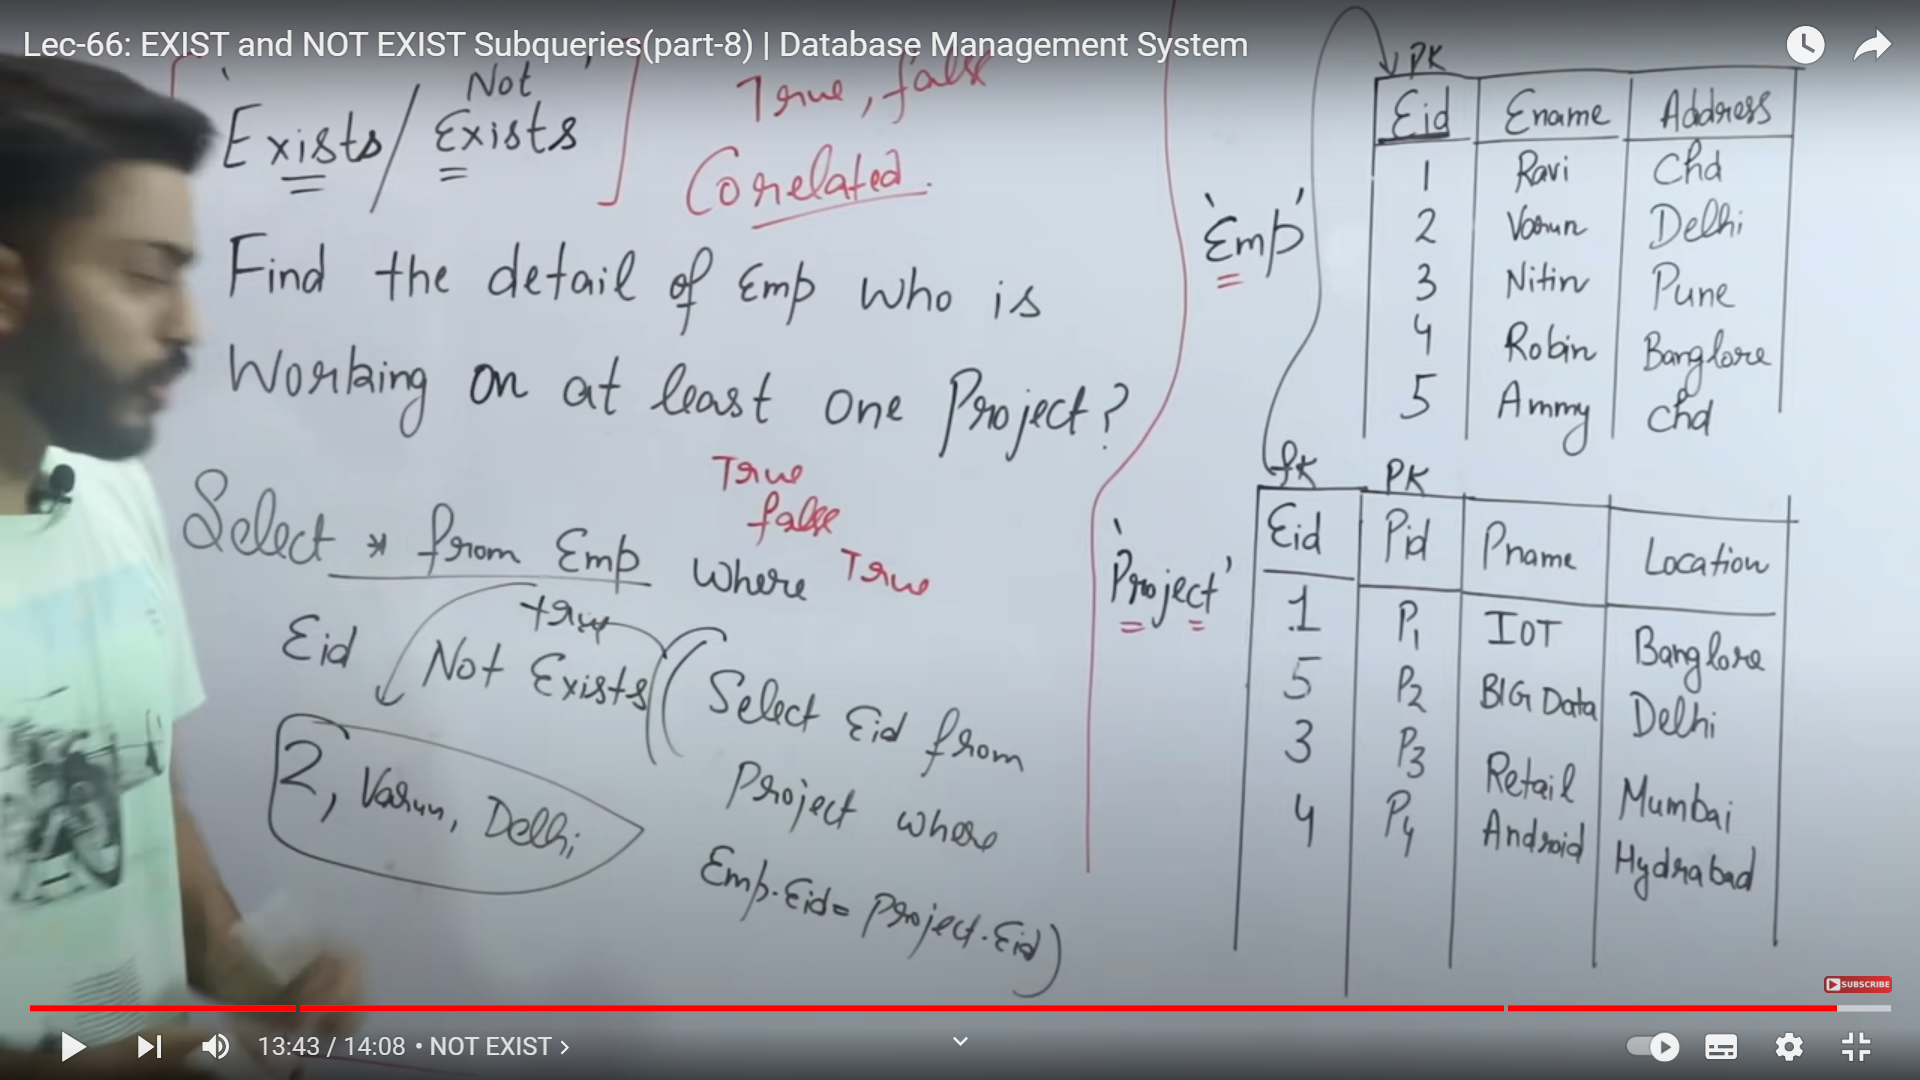 Lec-66: EXIST and NOT EXIST Subqueries(part-8) | Database Management System
Not
'Exists / Exists'
True, false
Corelated.
Find the detail of Emp who is
Working on at least one Project?
True
false
True
Select * from Emp where
true
Eid Not Exists (Select Eid from
Project where
Emp.Eid = Project.Eid)
2, Varun, Delhi
'Emp'
PK
Eid Ename Address
1 Ravi Chd
2 Varun Delhi
3 Nitin Pune
4 Robin Banglore
5 Ammy Chd
'Project'
fK PK
Eid Pid Pname Location
1 P1 IOT Banglore
5 P2 BIG Data Delhi
3 P3 Retail Mumbai
4 P4 Android Hydrabad
SUBSCRIBE
13:43 / 14:08 • NOT EXIST >